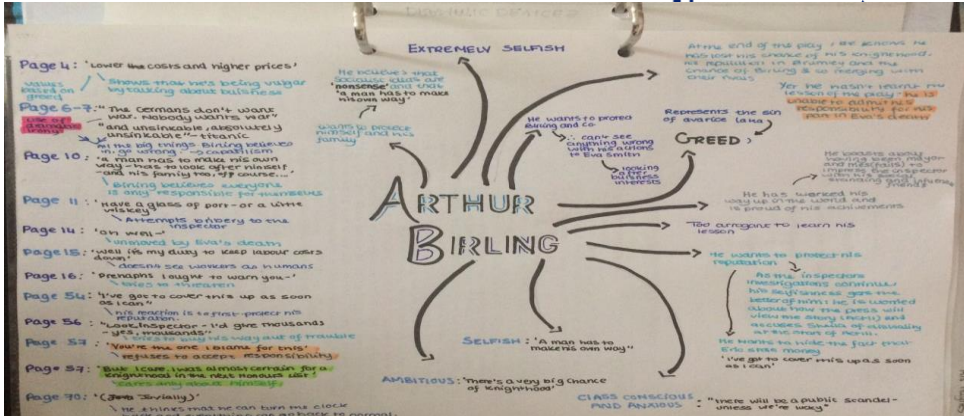 EXTREMELY SELFISH
Page 4: 'Lower the costs and higher prices'
values
based on
greed
shows that he's being vulgar
by talking about buisness
Page 6-7: "The Germans don't want
war. Nobody wants war"
use of
dramatic
irony
"and unsinkable, absolutely
unsinkable" - titanic
All the big things Birling believes
in go wrong
Page 10: 'a man has to make his own
way - has to look after himself
- and his family too, off course...
Birling believes everyone
is only responsible for themselves
Page 11: 'Have a glass of port - or a little
whiskey'
Attempts bribery to the
inspector
Page 14: 'oh well-'
unmoved by Eva's death
Page 15: 'well it's my duty to keep labour costs
down'
doesn't see workers as humans
Page 16: 'Prehaphs I ought to warn you-'
tries to threaten
Page 54: 'I've got to cover this up as soon
as I can'
his reaction is to first protect his
reputation.
Page 56 "Look Inspector - I'd give thousands
- yes, thousands"
tries to buy his way out of trouble
Page 57 'You're the one I blame for this'
refuses to accept responsibility
Page 57: 'But I care. I was almost certain for a
knighthood in the next honours list'
cares only about himself
Page 70: '(Jovially)'
He thinks that he can turn the clock
He believes that
socialist ideas are
'nonsense' and that
'a man has to make
his own way'
wants to protect
himself and his
family
He wants to protect
Birling and co.
∴ can't see
anything wrong
with his actions
to Eva Smith
looking
after
buisness
interests
At the end of the play, he
his chance of his knighthood,
his reputation in Brumley and the
chance of Birling & co merging with
their rivals
Yet he hasn't learnt the
lesson of the play - he is
unable to admit his
responsibility for his
part in Eva's death
Represents the sin
of avarice
GREED:
He boasts about
having been mayor
to
impress the inspector
with his social
friends
He has worked his
way up in the world and
is proud of his achivements
Too arrogant to learn his
lesson
ARTHUR
BIRLING
He wants to protect his
reputation
As the inspectors
investigations continue,
his selfishness gets the
better of him: he is worried
about how the press will
view the story and
accuses Sheila of disloyalty
He wants to hide the fact that
Eric stole money
'I've got to cover this up as soon
as I can'
SELFISH: 'A man has to
make his own way'
AMBITIOUS: 'There's a very big chance
of knighthood'
CLASS CONSCIOUS
AND ANXIOUS: "there will be a public scandel-
unless we're